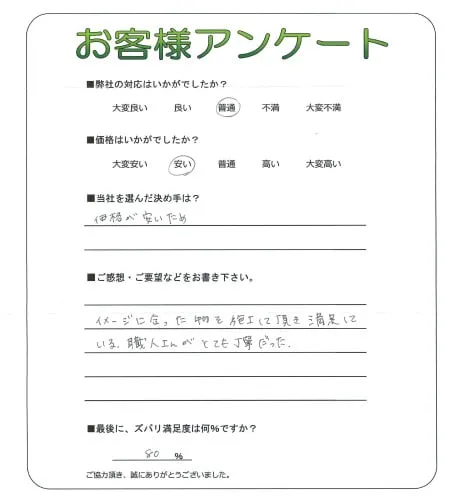 お客様アンケート
■弊社の対応はいかがでしたか？
大変良い 良い 普通 不満 大変不満
■価格はいかがでしたか？
大変安い 安い 普通 高い 大変高い
■当社を選んだ決め手は？
価格が安いため
■ご感想・ご要望などをお書き下さい。
イメージに合った物を施工して頂き満足して
いる。職人さんがとても丁寧だった。
■最後に、ズバリ満足度は何%ですか？
80 %
ご協力頂き、誠にありがとうございました。